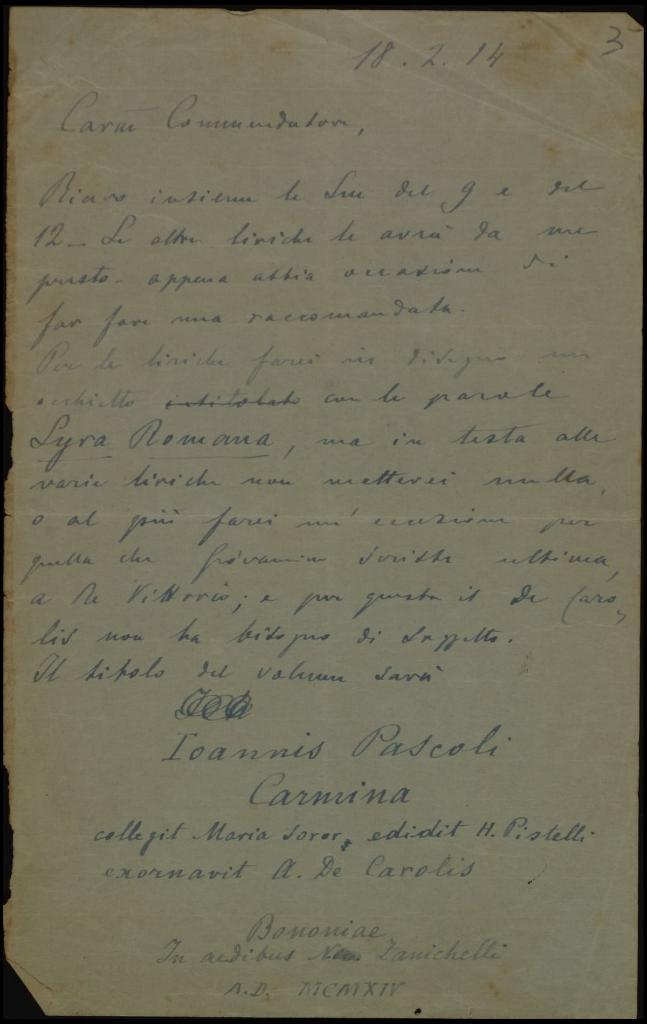 3
18.2.14
Carm Commendatore,
Ricevo insieme le Sue del 9 e del
12 - Le altre liriche le avrà da me
presto - appena abbia occasione di
far fare una raccomandata.
Per le liriche farei un disegno un
occhietto intitolato con le parole
Lyra Romana, ma in testa alle
varie liriche non metterei nulla,
o al più farei un' eccezione per
quella che Giovannino scrisse ultima,
a Re Vittorio; e per questa il De Caro-
lis non ha bisogno di soggetto.
Il titolo del volume sarà
Ioannis Pascoli
Carmina
collegit Maria soror, edidit H. Pistelli
exornavit A. De Carolis
Bononiae
In aedibus Zanichelli
A.D. MCMXIV